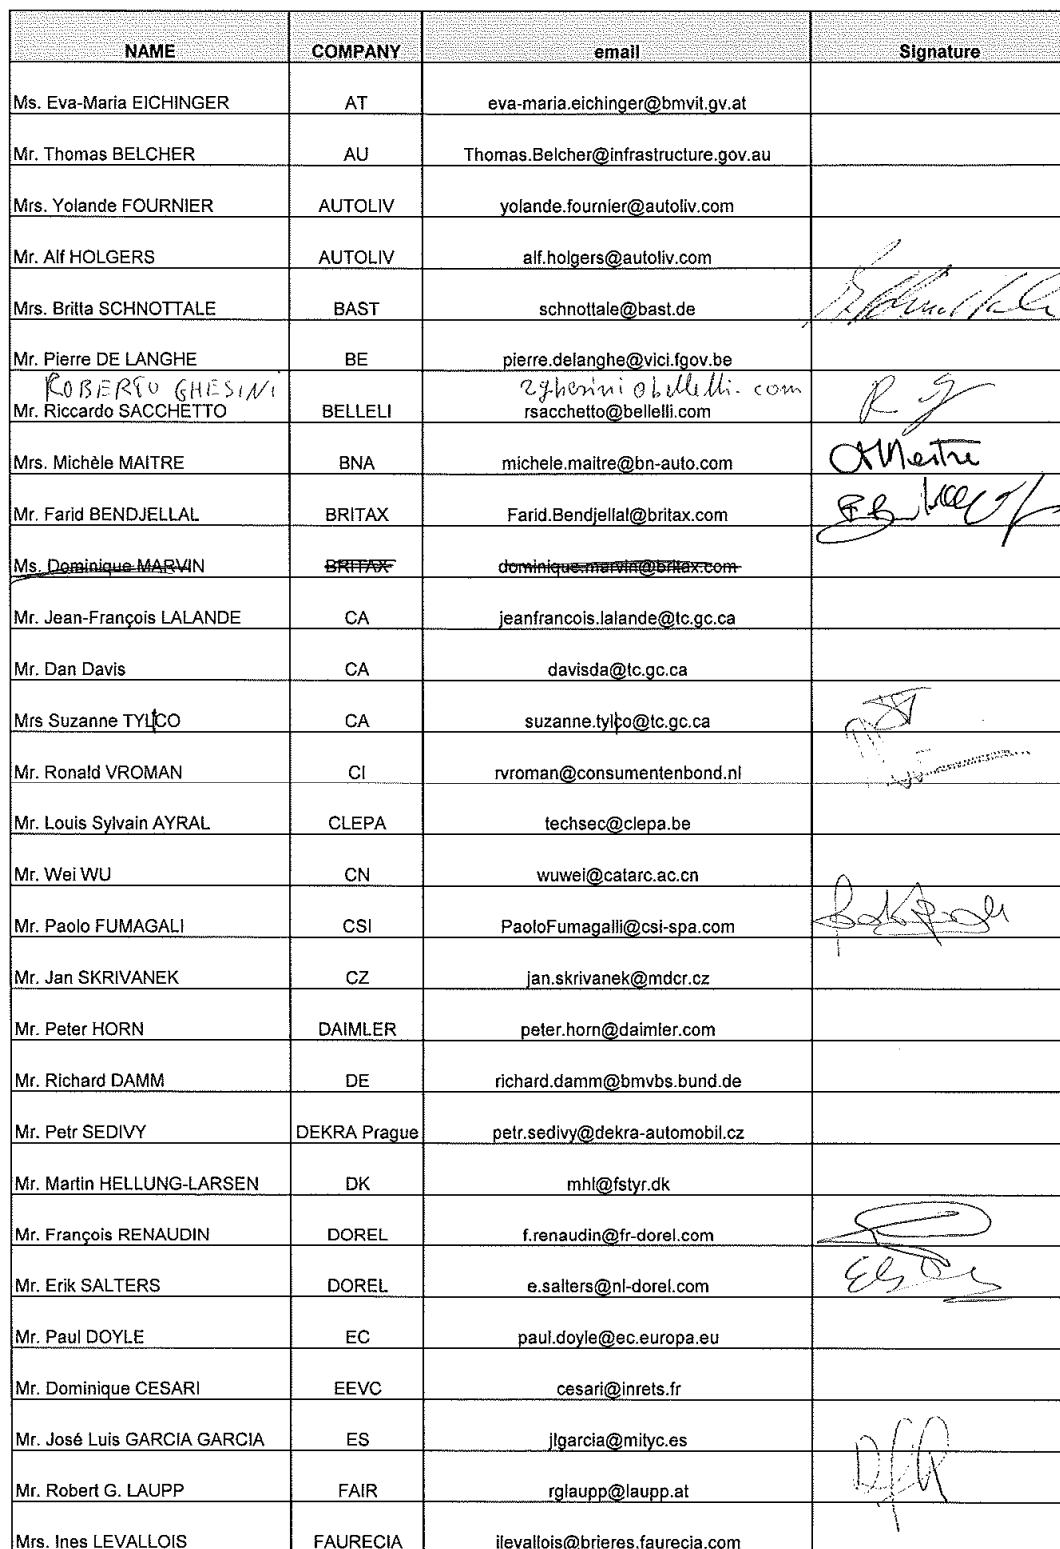 NAME COMPANY email Signature
Ms. Eva-Maria EICHINGER AT eva-maria.eichinger@bmvit.gv.at
Mr. Thomas BELCHER AU Thomas.Belcher@infrastructure.gov.au
Mrs. Yolande FOURNIER AUTOLIV yolande.fournier@autoliv.com
Mr. Alf HOLGERS AUTOLIV alf.holgers@autoliv.com
Mrs. Britta SCHNOTTALE BAST schnottale@bast.de
Mr. Pierre DE LANGHE BE pierre.delanghe@vici.fgov.be
ROBERTO GHESINI
Mr. Riccardo SACCHETTO BELLELI rsacchetto@bellelli.com
Mrs. Michèle MAITRE BNA michele.maitre@bn-auto.com
Mr. Farid BENDJELLAL BRITAX Farid.Bendjellal@britax.com
Ms. Dominique MARVIN BRITAX dominique.marvin@britax.com
Mr. Jean-François LALANDE CA jeanfrancois.lalande@tc.gc.ca
Mr. Dan Davis CA davisda@tc.gc.ca
Mrs Suzanne TYLCO CA suzanne.tylco@tc.gc.ca
Mr. Ronald VROMAN CI rvroman@consumentenbond.nl
Mr. Louis Sylvain AYRAL CLEPA techsec@clepa.be
Mr. Wei WU CN wuwei@catarc.ac.cn
Mr. Paolo FUMAGALI CSI PaoloFumagalli@csi-spa.com
Mr. Jan SKRIVANEK CZ jan.skrivanek@mdcr.cz
Mr. Peter HORN DAIMLER peter.horn@daimler.com
Mr. Richard DAMM DE richard.damm@bmvbs.bund.de
Mr. Petr SEDIVY DEKRA Prague petr.sedivy@dekra-automobil.cz
Mr. Martin HELLUNG-LARSEN DK mhl@fstyr.dk
Mr. François RENAUDIN DOREL f.renaudin@fr-dorel.com
Mr. Erik SALTERS DOREL e.salters@nl-dorel.com
Mr. Paul DOYLE EC paul.doyle@ec.europa.eu
Mr. Dominique CESARI EEVC cesari@inrets.fr
Mr. José Luis GARCIA GARCIA ES jlgarcia@mityc.es
Mr. Robert G. LAUPP FAIR rglaupp@laupp.at
Mrs. Ines LEVALLOIS FAURECIA ilevallois@brieres.faurecia.com